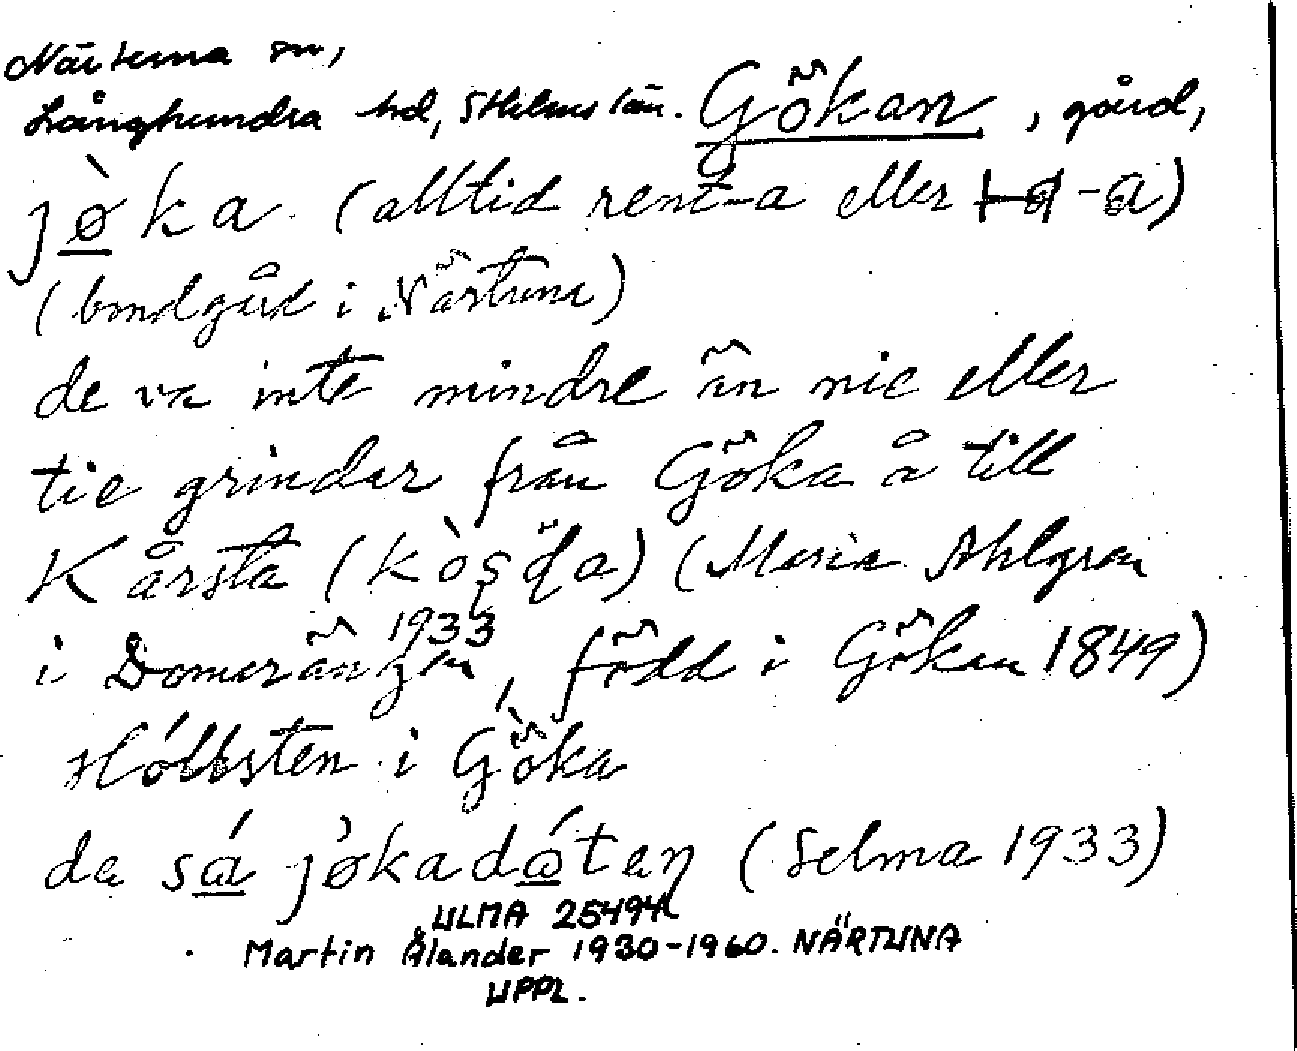 Närtuna sn,
Långhundra hd, Sthlms län. Gökan, gård,
jø̀ka (alltid rent -a eller -a)
(bondgård i Närtuna)
de va inte mindre än nie eller
tie grindar från Göka å till
Kårsta (kòsta) (Maria Ahlgren
i Domarängen 1933, född i Gökan 1849)
Hóllsten i Göka
da sá jøkadåten (Selma 1933)
ULMA 25494
Martin Ålander 1930-1960. NÄRTUNA
UPPL.